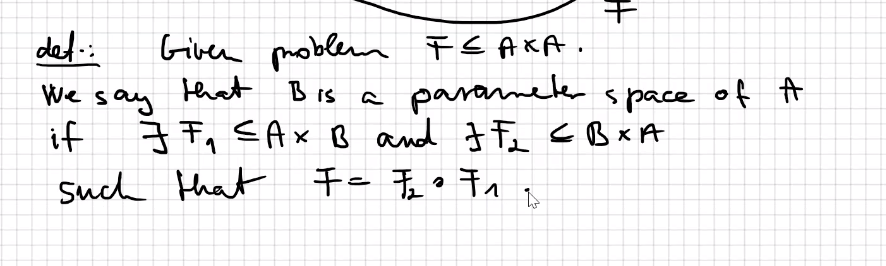 F
def.: Given problem F ⊆ A×A.
We say that B is a parameter space of A
if ∃ F₁ ⊆ A × B and ∃ F₂ ⊆ B × A
such that F = F₂ ∘ F₁.